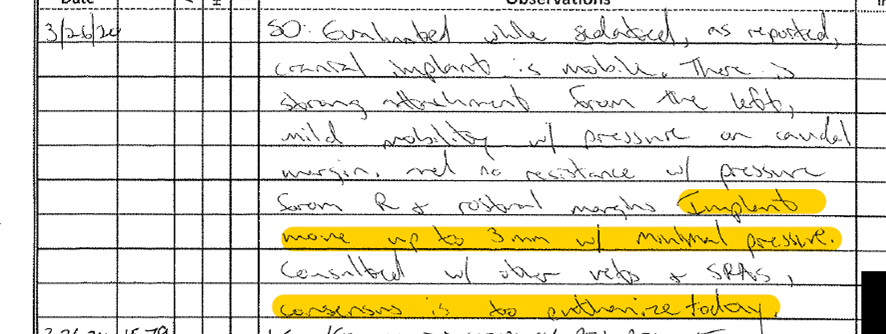 Date Observations
3/26/24 SO: Evaluated while sedated, as reported,
cranial implant is mobile. There is
strong attachment from the left,
mild mobility w/ pressure on caudal
margin, and no resistance w/ pressure
from R & rostral margins Implant
move up to 3mm w/ minimal pressure.
Consulted w/ other vets & SRAs,
consensus is to euthanize today.